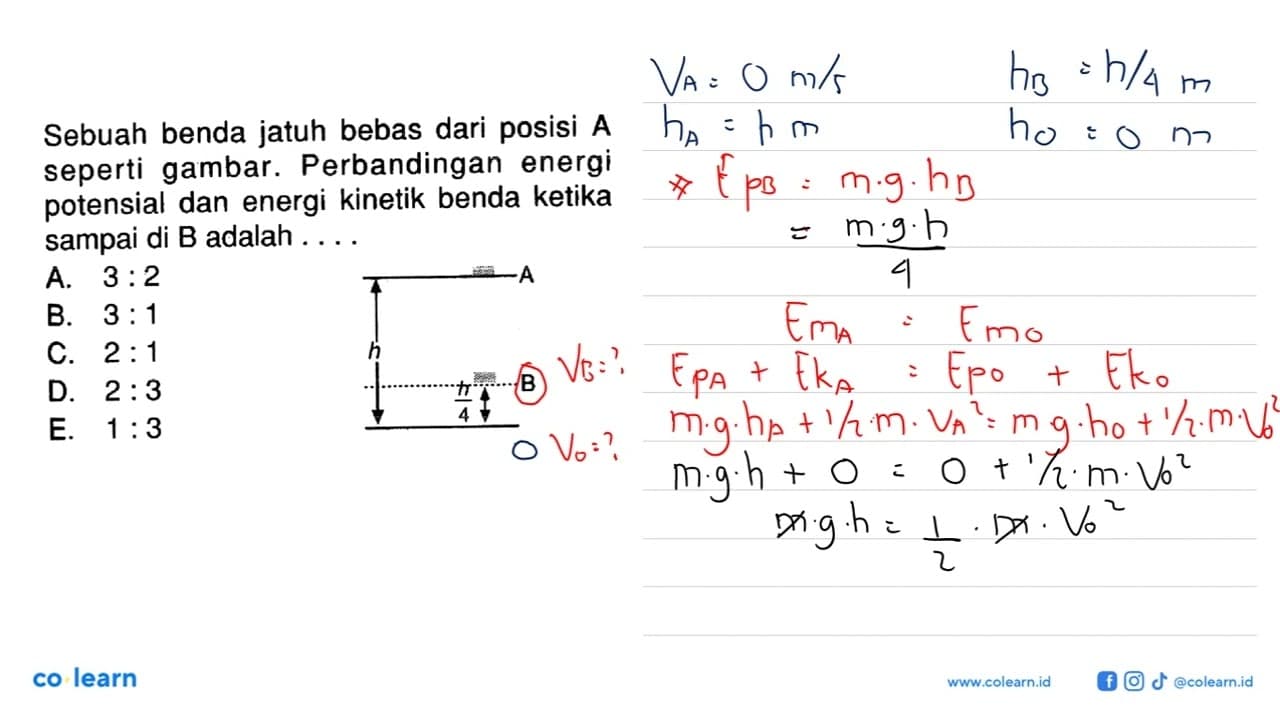 Sebuah benda jatuh bebas dari posisi A
seperti gambar. Perbandingan energi
potensial dan energi kinetik benda ketika
sampai di B adalah . . . .
A. 3 : 2
B. 3 : 1
C. 2 : 1
D. 2 : 3
E. 1 : 3
A
h
h/4
B
VB = ?
O V₀ = ?
VA = 0 m/s
hA = h m
hB = h/4 m
hO = 0 m
* EpB = m.g.hB
= m.g.h/4
EmA = EmO
EpA + EkA = EpO + EkO
m.g.hA + 1/2.m.VA² = m g.hO + 1/2.m.V₀²
m.g.h + 0 = 0 + 1/2.m.V₀²
m.g.h = 1/2 . m . V₀²
co learn
www.colearn.id
@colearn.id